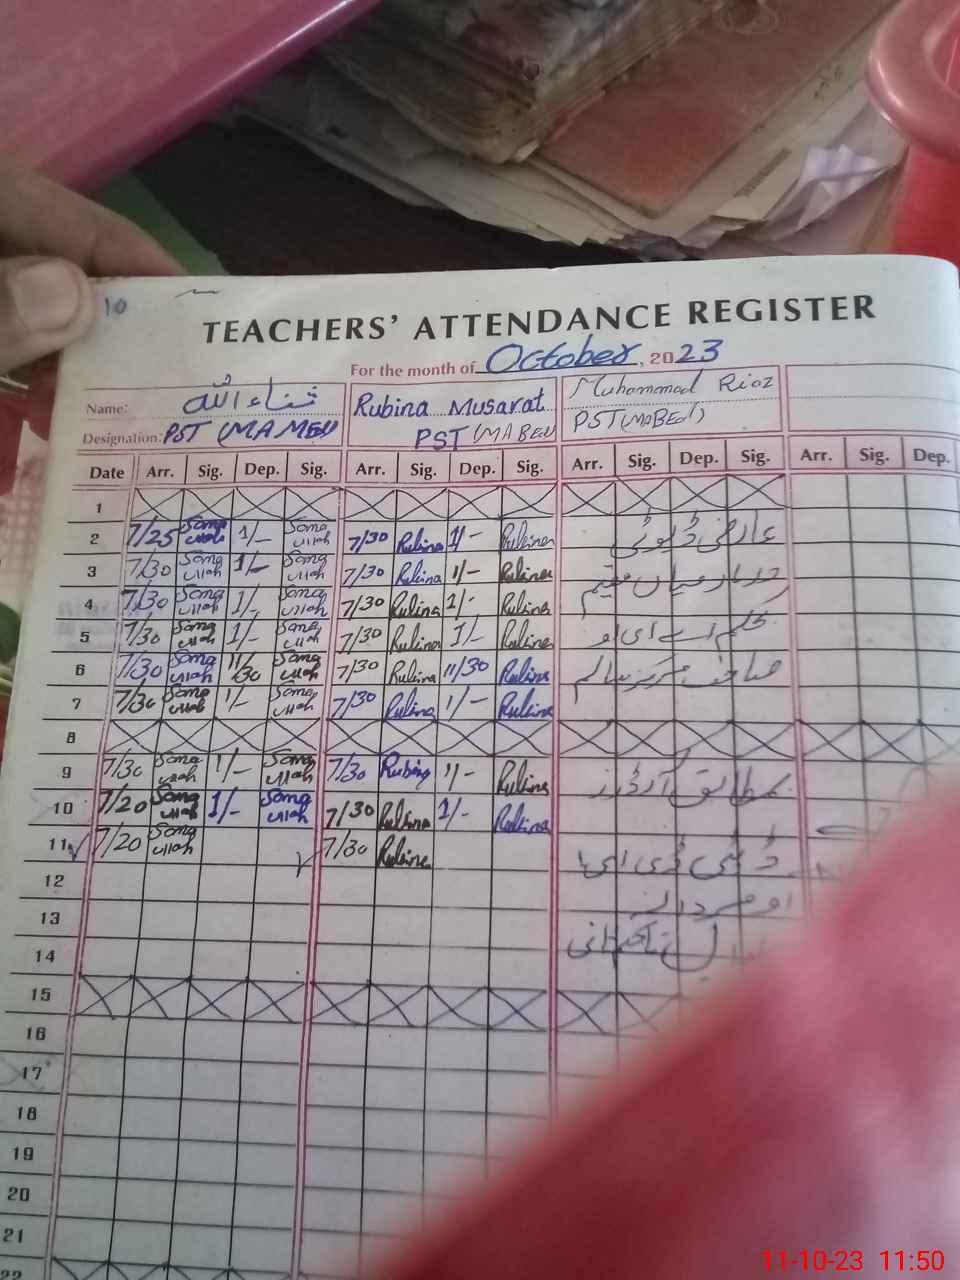 10
TEACHERS' ATTENDANCE REGISTER
For the month of October, 2023
Name: ثناء اللہ Rubina Musarat Muhammad Riaz
Designation: PST (MA MEd) PST (MA BEd) PST (MA BEd)
Date Arr. Sig. Dep. Sig. Arr. Sig. Dep. Sig. Arr. Sig. Dep. Sig. Arr. Sig. Dep.
1
2 7/25 Sana ullah 1/- Sana ullah 7/30 Rubina 1/- Rubina عارضی ڈیوٹی
3 7/30 Sana ullah 1/- Sana ullah 7/30 Rubina 1/- Rubina
4 7/30 Sana ullah 1/- Sana ullah 7/30 Rubina 1/- Rubina
5 7/30 Sana ullah 1/- Sana ullah 7/30 Rubina 1/- Rubina اے ای او
6 7/30 Sana ullah 11/30 Sana ullah 7/30 Rubina 11/30 Rubina
7 7/30 Sana ullah 1/- Sana ullah 7/30 Rubina 1/- Rubina
8
9 7/30 Sana ullah 1/- Sana ullah 7/30 Rubina 1/- Rubina بمطابق آرڈرز
10 7/20 Sana ullah 1/- Sana ullah 7/30 Rubina 1/- Rubina
11 7/20 Sana ullah 7/30 Rubina ڈپٹی ڈی ای
12
13 او مردانہ
14
15
16
17
18
19
20
21
22
11-10-23 11:50